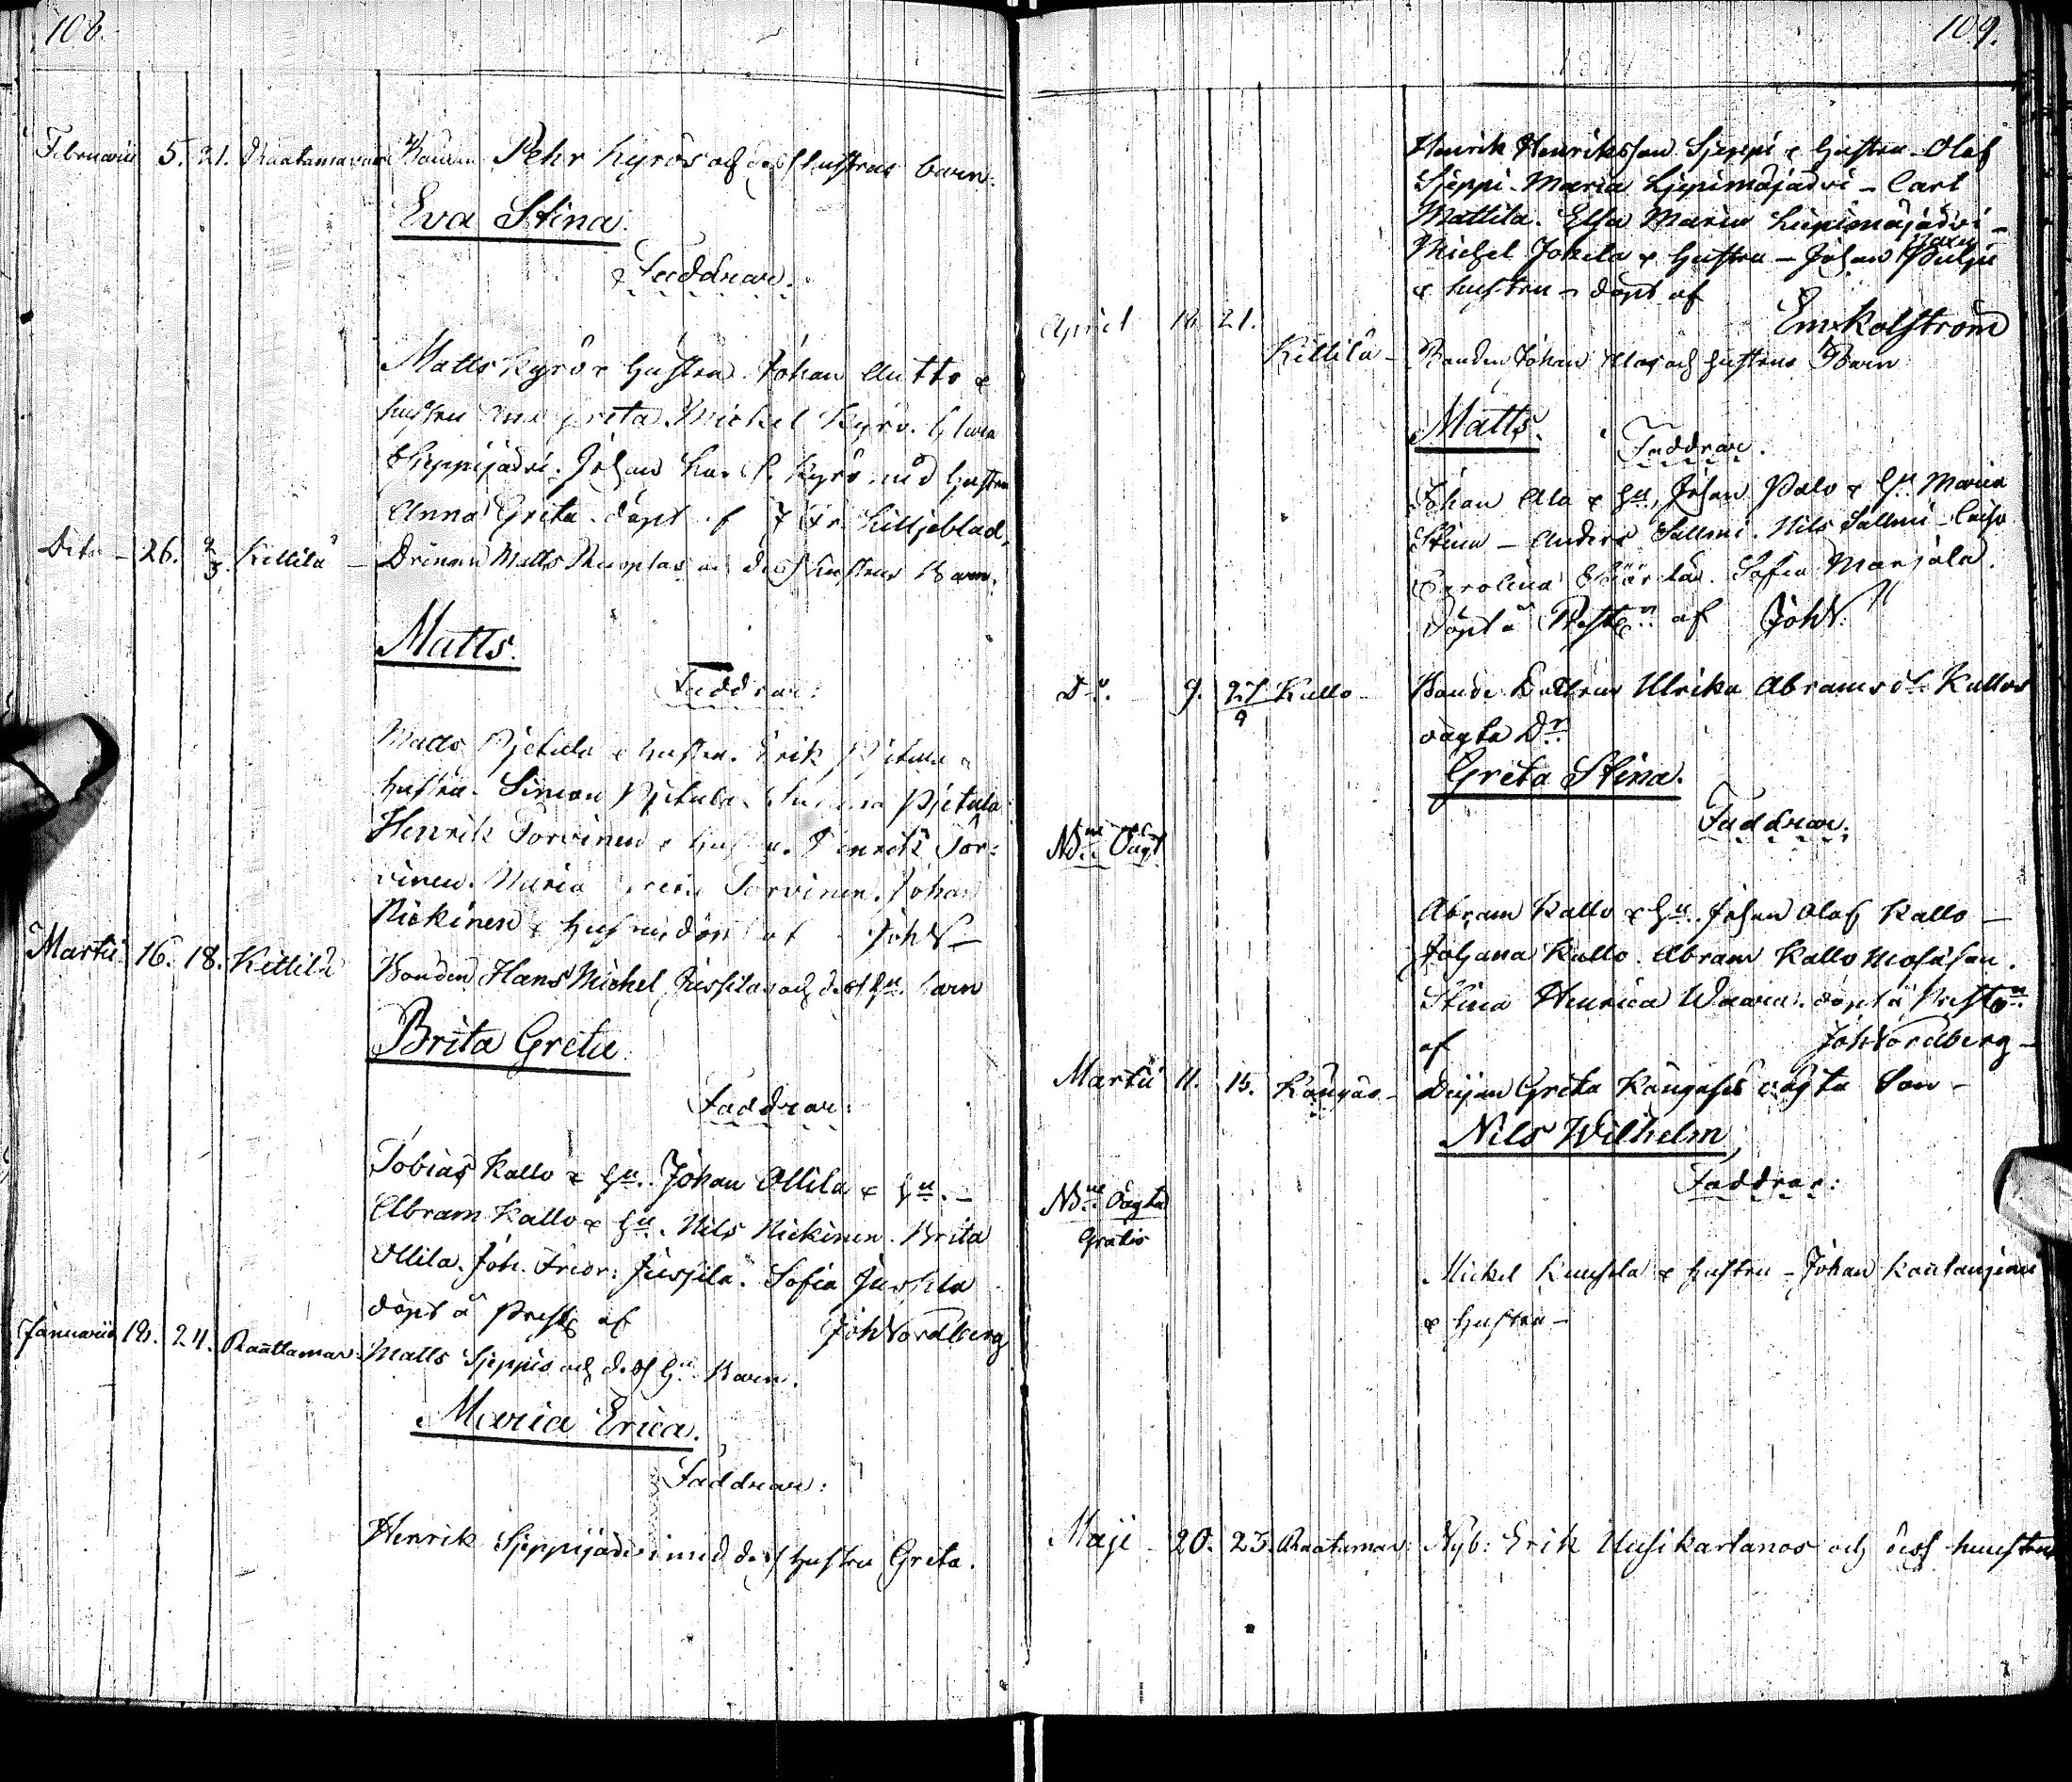 108.
Februarii 5. 21. Raatamavaar Bonden Pehr Kyrös och dess hustrus barn.
Eva Stina.
Faddrar:
Matts Kyrö & hustru. Johan Autto &
hustru Greta. Michel Kyrö.
Sieppijädvi. Johan Kyrö med hustru
Anna Greta. döpt af J Fr. Liljeblad,
Dito - 26. 2/3. Kittilä - Drängen Matts och dess hustrus Barn.
Matts.
Faddrar:
Matts Pjetula & hustru. Erik Pjetula &
hustru. Simon Pjetula. Pjetula
Henrik Torvinen & hustru. Henrik Tor:
vinen. Maria Torvinen. Johan
Niekinen & hustru döpt af JohN-
Martii 16. 18. Kittilä Bonden Hans Michel Jussilas och dess hu. barn
Brita Greta.
Faddrar:
Tobias Kallo & hu. Johan Ollila & hu. -
Abram Kallo & hu. Nils Niekinen. Brita
Ollila. Joh. Fridr: Jussila. Sofia Jussila
döpt å Prestg af JohNordberg
Januarii 18. 24. Raattamav: Matts Sjeppis och dess hu Barn.
Maria Erica.
Faddrar:
Henrik Sjeppijädvi med dess hustru Greta.
109.
Henrik Henriksson Sjeppi & hustru - Olof
Sjeppi - Maria Liepimäjädvi - Carl
Mattila. Elsa Maria Liepimäjädvi -
Michel Jokela & hustru - Johan
& hustru - döpt af
Em Kolström
April 18 21.
Kittilä - Bonden Johan Alas och hustrus Barn
Matts.
Faddrar.
Johan Ala & hu. Johan Palo & hu. Maria
Stina - Anders Sallmi. Nils Sallmi - Caisa
Carolina Sofia Marjala.
döpt å Prestgn af JohN.
Do. 9. 27/9 Kallo - Bonde Dottren Ulrika Abramsdr Kallos
oägta Dr
Greta Stina.
Faddrar:
NBne Oägt
Abram Kallo & hu. Johan Olof Kallo -
Johana Kallo. Abram Kallo Mosesson.
Stina Henrica Waara. döpt å Prestgn
af JohNordberg -
Martii 11. 15. Kangas - Pigan Greta Kangasses oägta Son -
Nils Wilhelm,
Faddrar:
NBne Oägta
Gratis
Mickel & hustru - Johan
& hustru -
Maji - 20. 23. Raatamav: Nyb: Erik Uusikartanos och dess hustrus